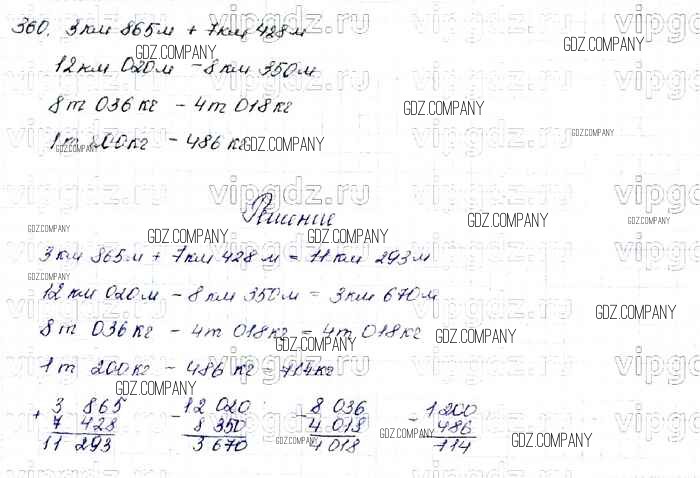 360. 3км 865м + 7км 428м
12км 020м - 8км 350м
8т 036кг - 4т 018кг
1т 200кг - 486кг
Решение
3км 865м + 7км 428м = 11км 293м
12км 020м - 8км 350м = 3км 670м
8т 036кг - 4т 018кг = 4т 018кг
1т 200кг - 486кг = 714кг
+ 3 865 - 12 020 - 8 036 - 1200
7 428 8 350 4 018 486
11 293 3 670 4 018 714
vipgdz.ru
GDZ.COMPANY